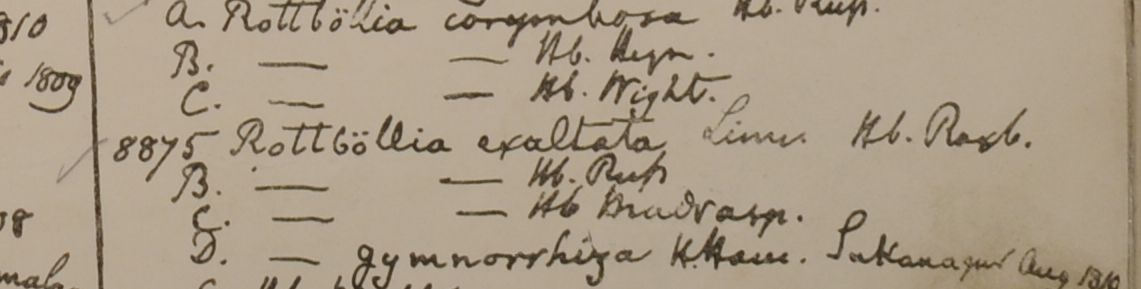 A. Rottböllia corymbosa Hb. Russ.
810
B. — — Hb. Heyn.
1809
C. — — Hb. Wight.
8875 Rottböllia exaltata Linn. Hb. Roxb.
B. — — Hb. Russ
C. — — Hb
D. — gymnorrhiza H.Ham. Aug 1810